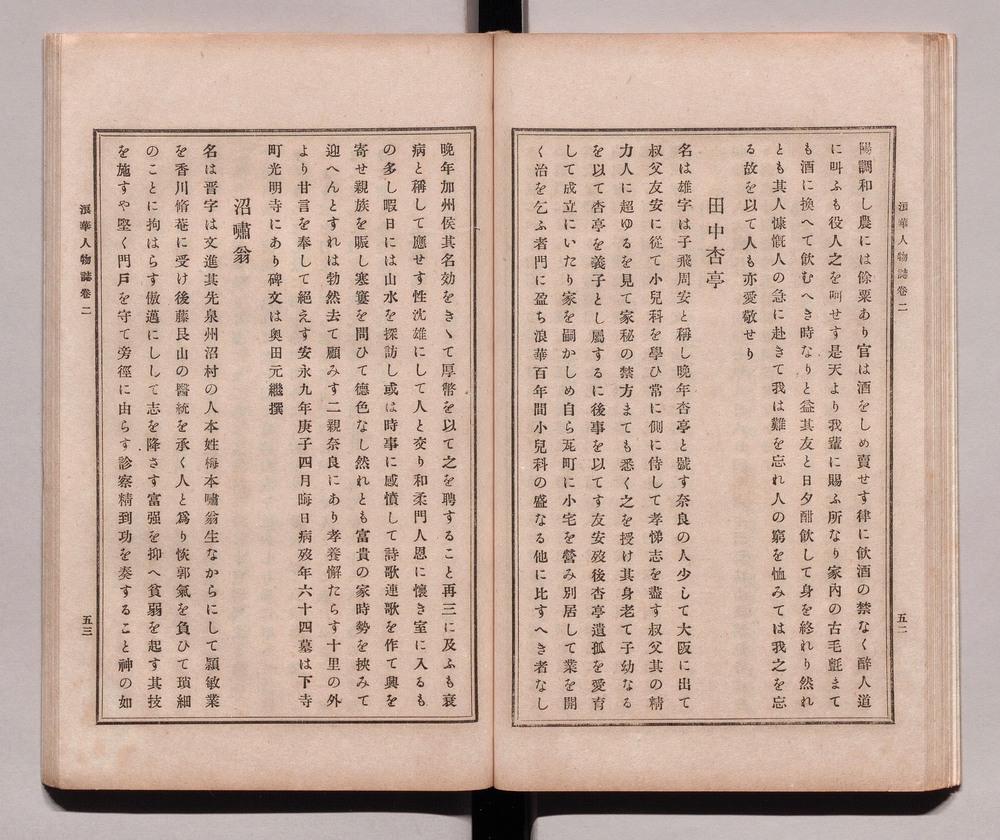 浪華人物誌卷二
五二
陽調和し農には餘粟あり官は酒をしめ賣せす律に飮酒の禁なく醉人道
に叫ふも役人之を呵せす是天より我輩に賜ふ所なり家內の古毛氈まて
も酒に換へて飮むへき時なりと益其友と日夕酣飮して身を終れり然れ
とも其人慷慨人の急に赴きて我は難を忘れ人の窮を恤みては我之を忘
る故を以て人も亦愛敬せり
田中杏亭
名は雄字は子飛周安と稱し晚年杏亭と號す奈良の人少して大阪に出て
叔父友安に從て小兒科を學ひ常に側に侍して孝悌志を盡す叔父其の精
力人に超ゆるを見て家秘の禁方まても悉く之を授け其身老て子幼なる
を以て杏亭を義子とし屬するに後事を以てす友安歿後杏亭遺孤を愛育
して成立にいたり家を嗣かしめ自ら瓦町に小宅を營み別居して業を開
く治を乞ふ者門に盈ち浪華百年間小兒科の盛なる他に比すへき者なし
晚年加州侯其名効をきゝて厚幣を以て之を聘すること再三に及ふも衰
病と稱して應せす性沈雄にして人と交り和柔門人恩に懷き室に入るも
の多し暇日には山水を探訪し或は時事に感憤して詩歌連歌を作て興を
寄せ親族を賑し寒窶を問ひて德色なし然れとも富貴の家時勢を挾みて
迎へんとすれは勃然去て顧みす二親奈良にあり孝養懈たらす十里の外
より甘言を奉して絕えす安永九年庚子四月晦日病歿年六十四墓は下寺
町光明寺にあり碑文は奧田元繼撰
沼嘯翁
名は晋字は文進其先泉州沼村の人本姓梅本嘯翁生なからにして穎敏業
を香川脩菴に受け後藤艮山の醫統を承く人と爲り恢郭氣を負ひて瑣細
のことに拘はらす傲邁にしして志を降さす富强を抑へ貧弱を起す其技
を施すや堅く門戶を守て旁徑に由らす診察精到功を奏すること神の如
浪華人物誌卷二
五三